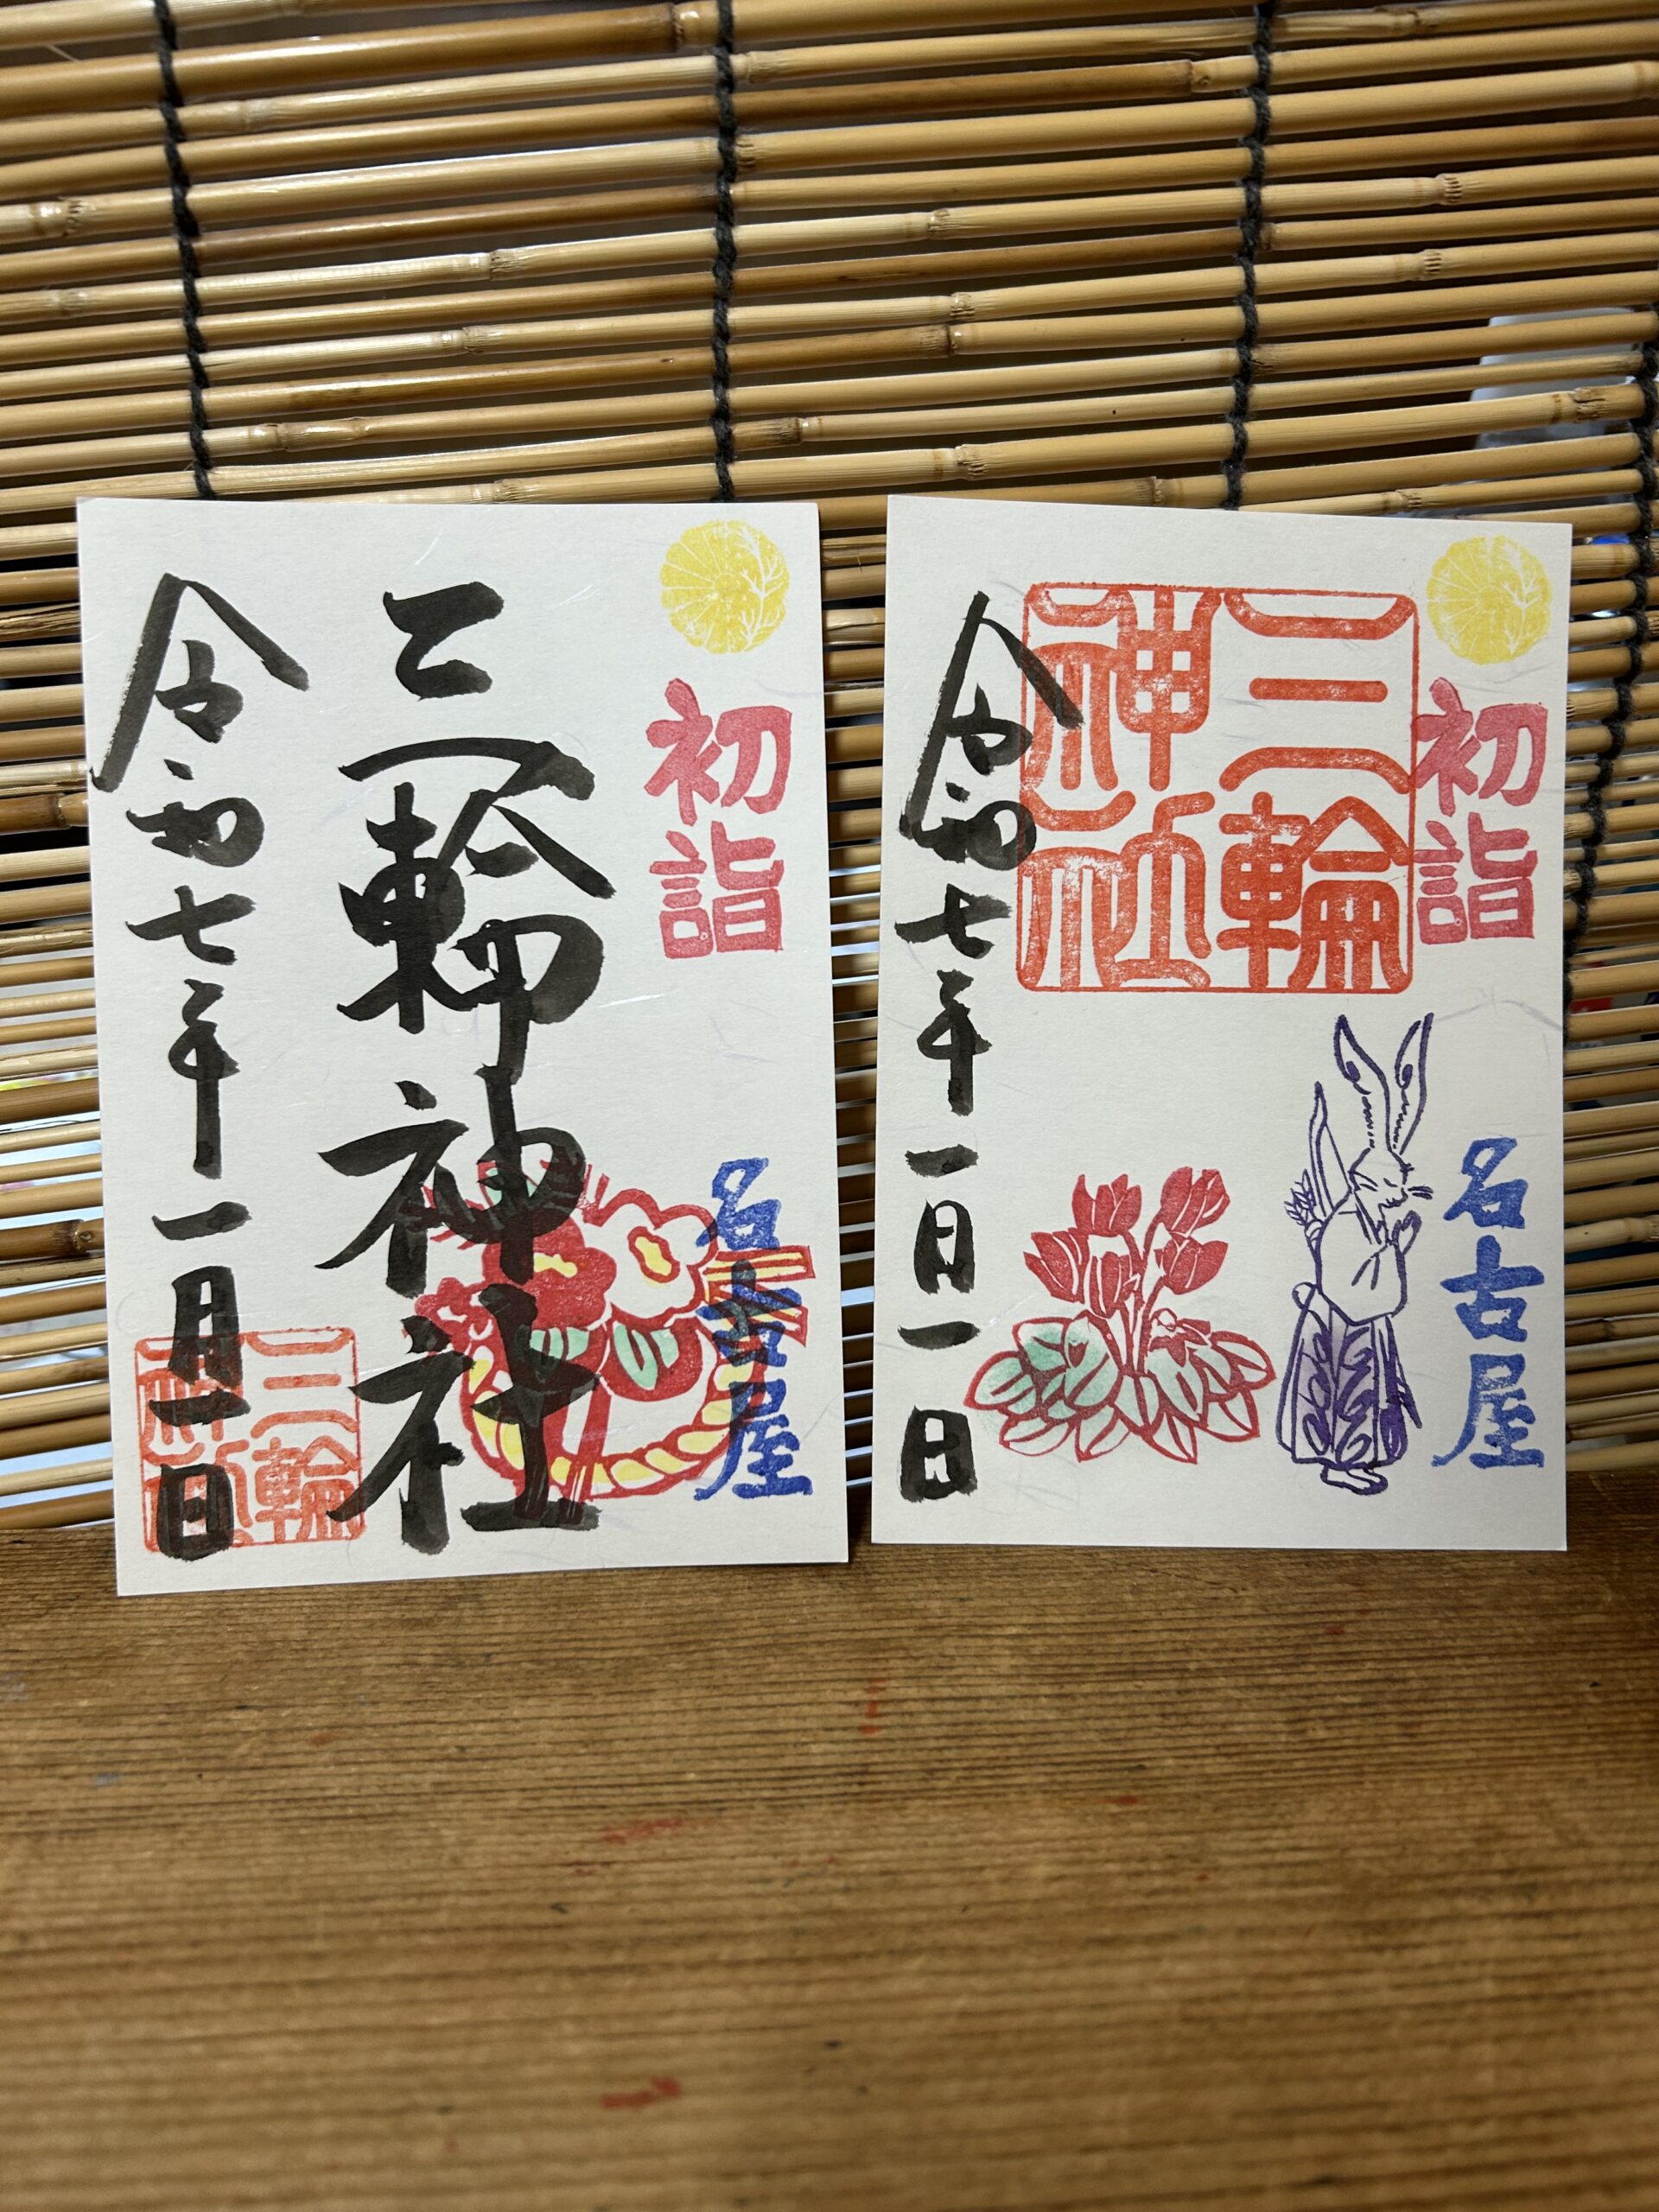 初詣
名古屋
三輪神社
令和七年一月一日
三輪神社
初詣
名古屋
三輪神社
令和七年一月一日